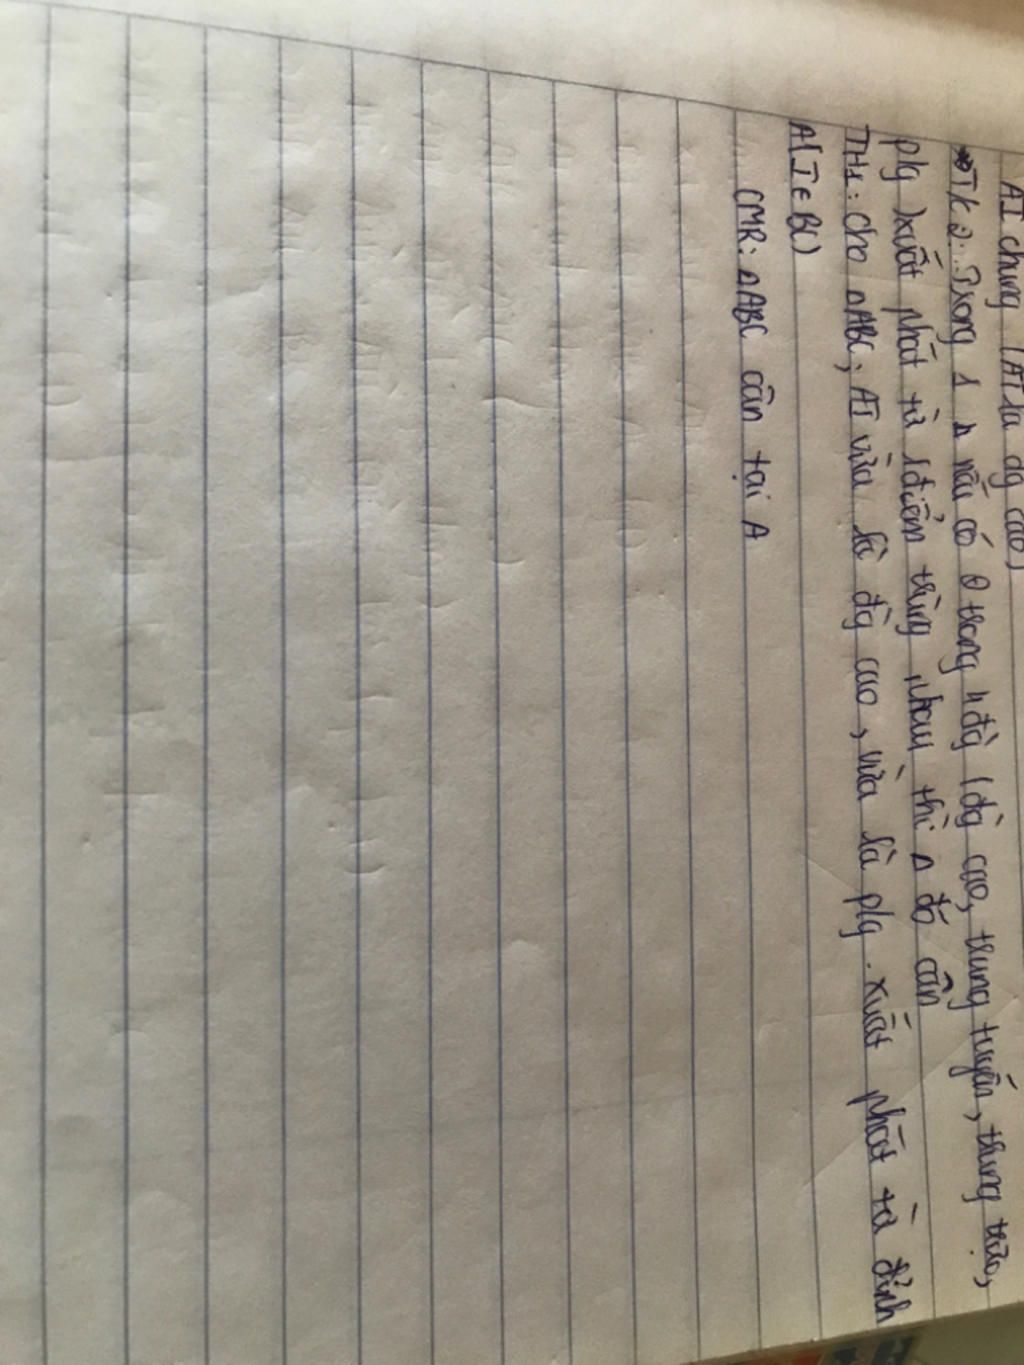 AI chung (AI là đg cao)
T/c 2: Trong 1 Δ nếu có 2 trong 4 đg (đg cao, trung tuyến, trung trực,
p/g) xuất phát từ 1 điểm trùng nhau thì Δ đó cân
TH1: Cho ΔABC; AI vừa là đg cao, vừa là p/g. xuất phát từ đỉnh
A(I ∈ BC)
CMR: ΔABC cân tại A